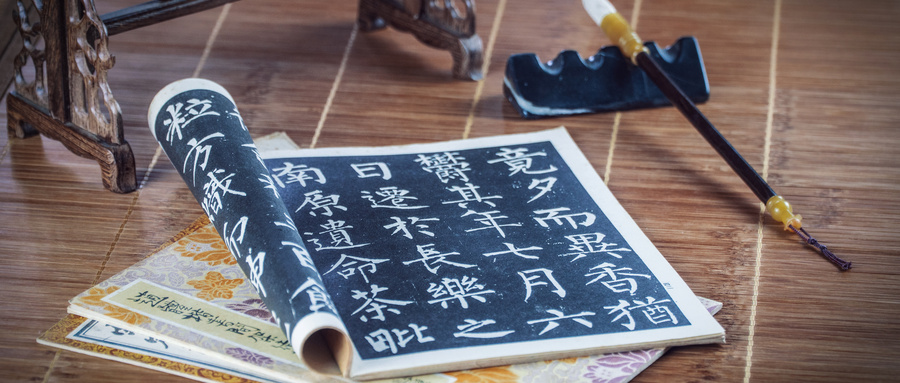 竟夕而異香猶
鬱其年七月六
日遷於長樂之
南原遺命茶毗
百
粒方熾